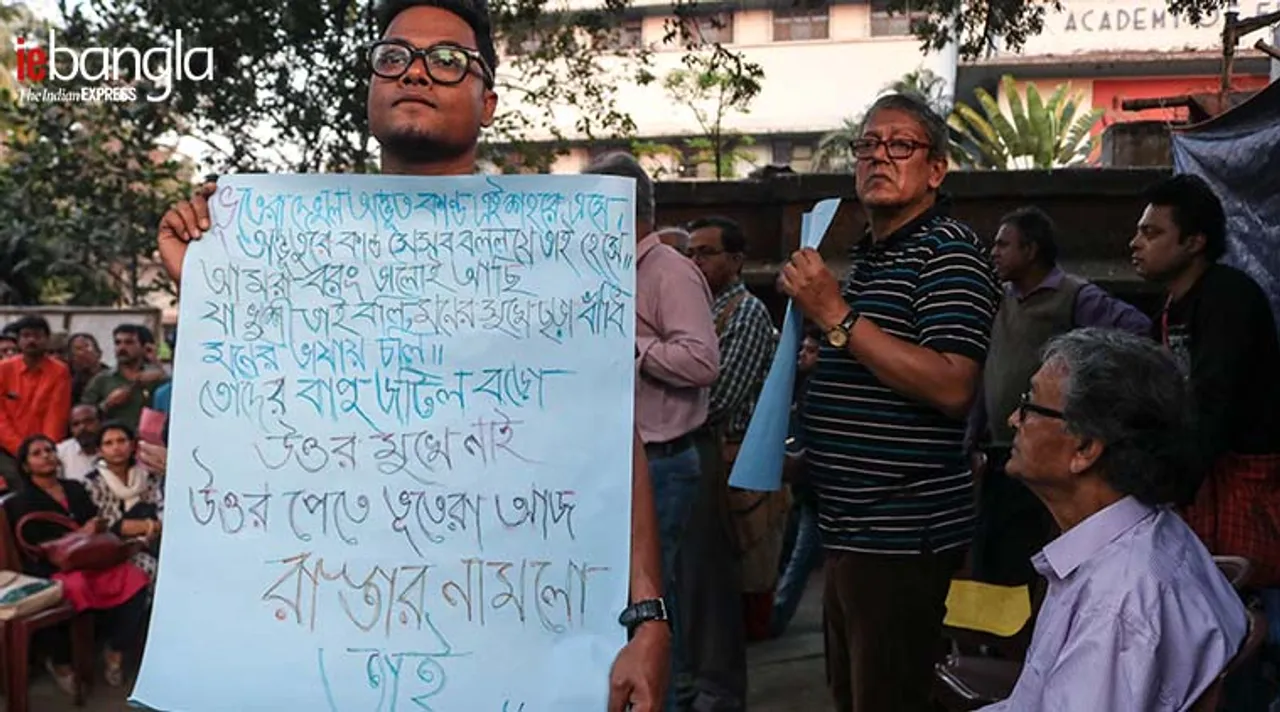 iebangla
The Indian EXPRESS
ACADEMY OF F
ভূতেরা দেখুল অদ্ভুত কান্ড এই শহরে এসে,
অদ্ভুতুরে কান্ড সেসব বলল যে তাই হেসে॥
আমরা বরং ভালোই আছি
যা খুশী তাই বলি মনের সুখে ছড়া বাঁধি
মনের ভাষায় চলি॥
তোদের বাপু জটিল বড়ো
উত্তর মুখে নাই
উত্তর পেতে ভূতেরা আজ
রাস্তায় নামলো
তাই